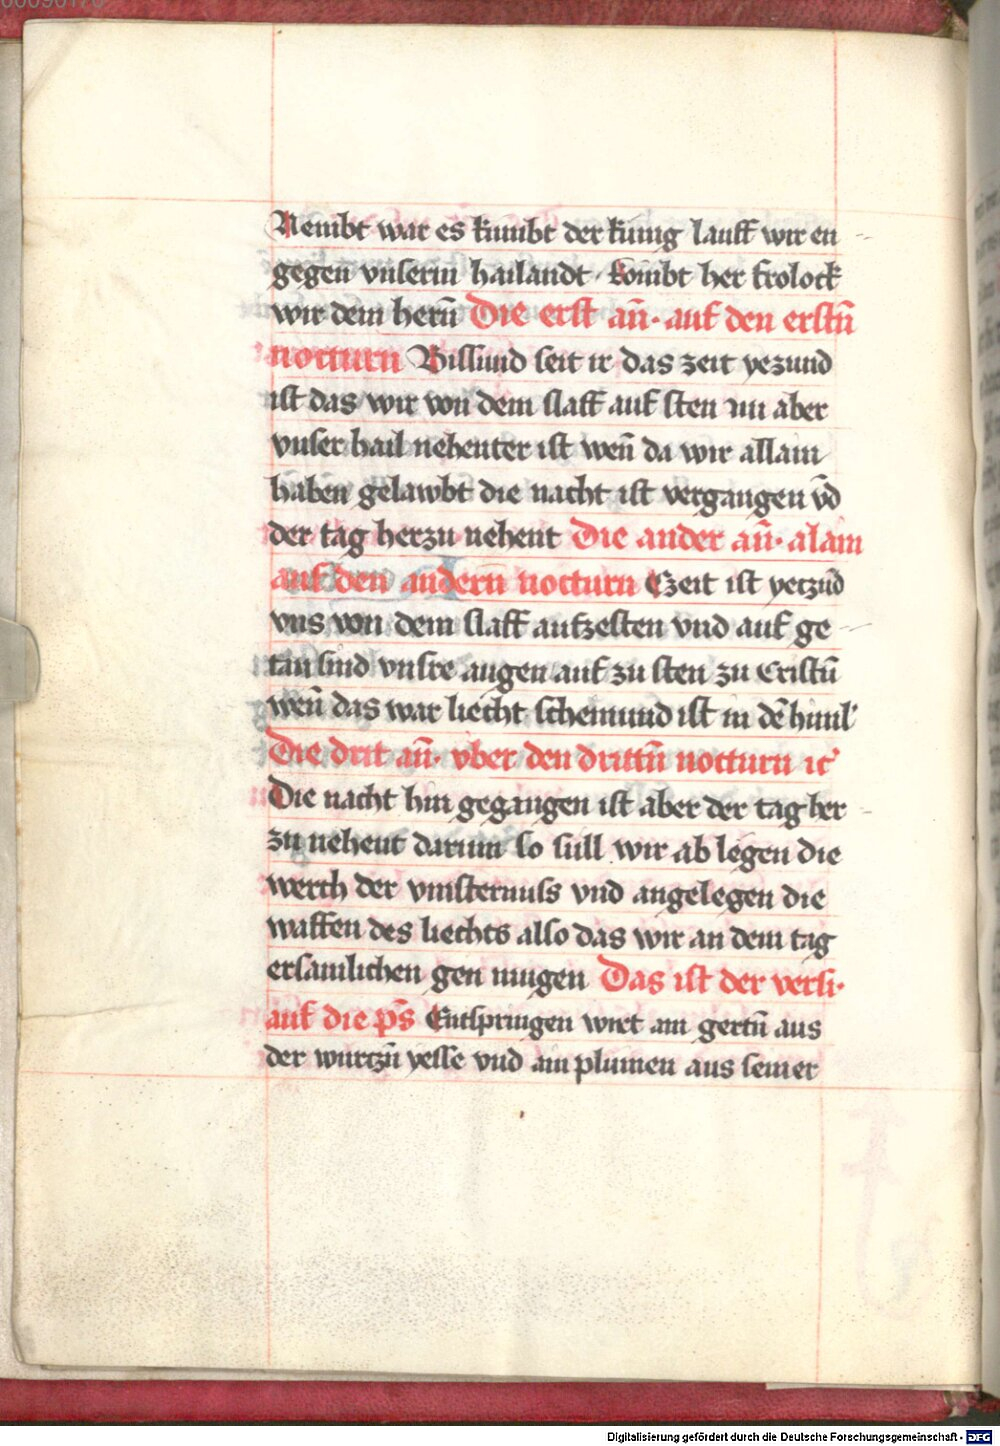 Nembt war es kumbt der kunig lauff wir en
gegen vnserm hailandt · kombt her frolock
wir dem herñ Die erst añ · auf den erstñ
nocturn Wissund seit ir das zeit yezund
ist das wir von dem slaff auf sten nu aber
vnser hail nehenter ist weñ da wir allain
haben gelawbt die nacht ist vergangen vd̄
der tag herzu nehent Die ander añ · alain
auf den andern nocturn Czeit ist yeczūd
vns von dem slaff aufzesten vnd auf ge
tan sind vnsre augen auf zu sten zu Cristū
weñ das war liecht scheinund ist in dē himl'
Die drit añ · vber den drittñ nocturn ic'
Die nacht hin gegangen ist aber der tag her
zu nehent darum so sull wir ab legen die
werch der vinsternuss vnd angelegen die
waffen des liechts also das wir an dem tag
ersamlichen gen mugen Das ist der versi ·
auf die pš Entspringen wirt ain gertñ aus
der wurczñ yesse vnd ain plumen aus seiner
Digitalisierung gefördert durch die Deutsche Forschungsgemeinschaft - DFG